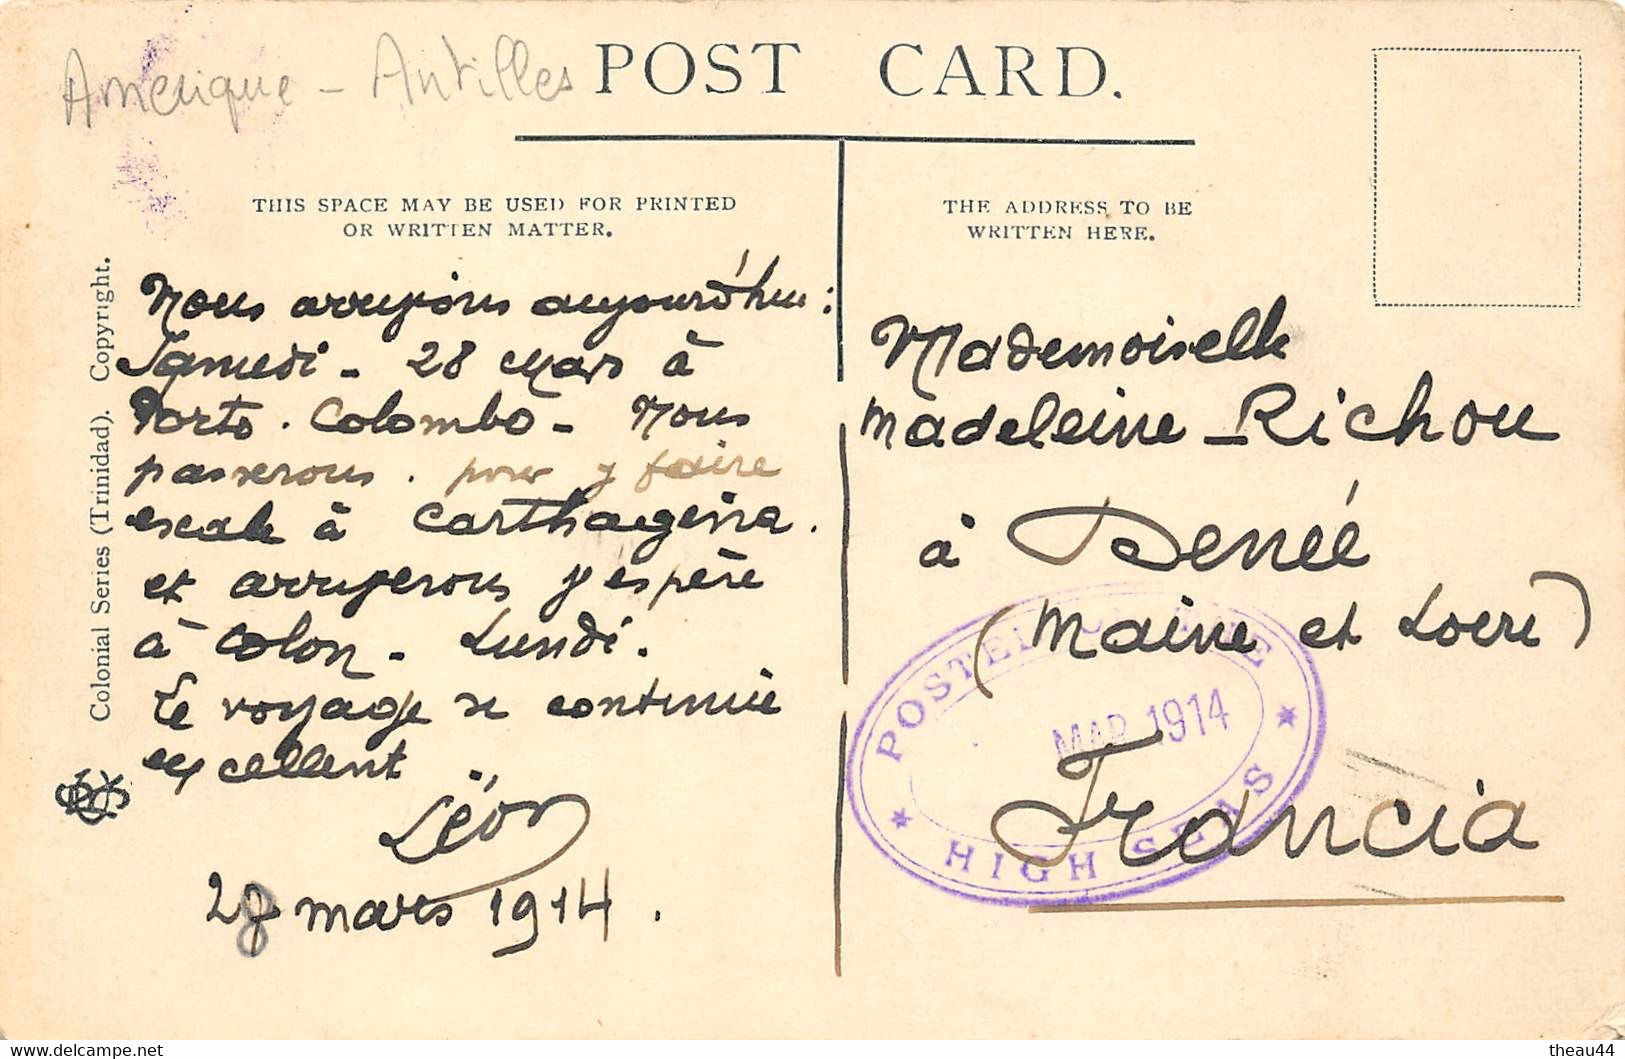 Amérique - Antilles
POST CARD.
THIS SPACE MAY BE USED FOR PRINTED
OR WRITTEN MATTER.
THE ADDRESS TO BE
WRITTEN HERE.
Colonial Series (Trinidad). Copyright.
Nous arrivons aujourd'hui :
Samedi - 28 Mars à
Porto. Colombo - Nous
passerons. pour y faire
escale à Carthagena.
et arriverons j'espère
à Colon - Lundi.
Le voyage se continue
excellent
Léon
28 mars 1914.
Mademoiselle
Madeleine - Richou
à Denée
(Maine et Loire)
Francia
POSTED
HIGH SEAS
MAR 1914
theau44